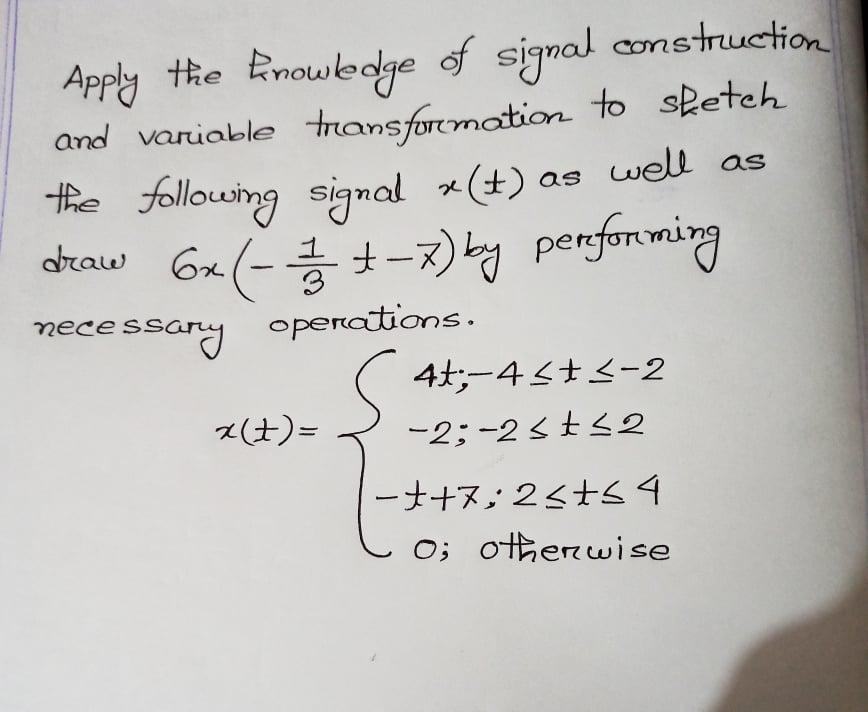 Apply the knowledge of signal construction
and variable transformation to sketch
the following signal x(t) as well as
draw 6x(-1/3 t-7) by performing
necessary operations.
4t; -4≤t≤-2
x(t)= { -2; -2≤t≤2
-t+7; 2≤t≤4
0; otherwise